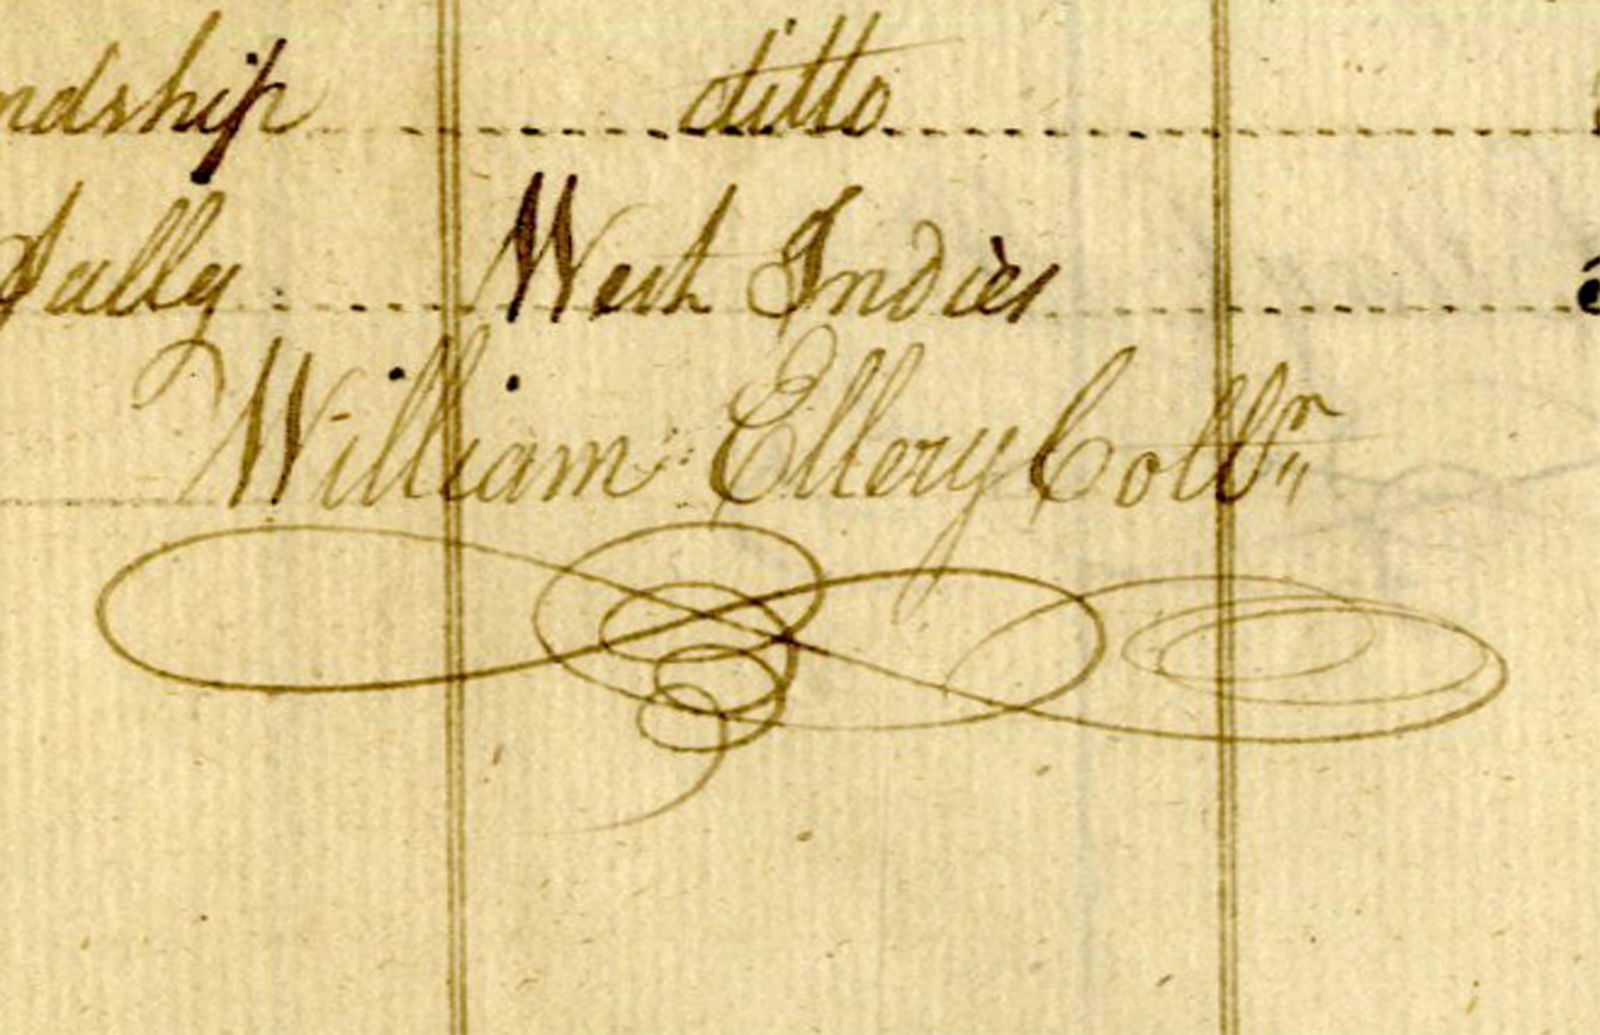 ndship ditto
Sally West Indies
William Ellery Collr